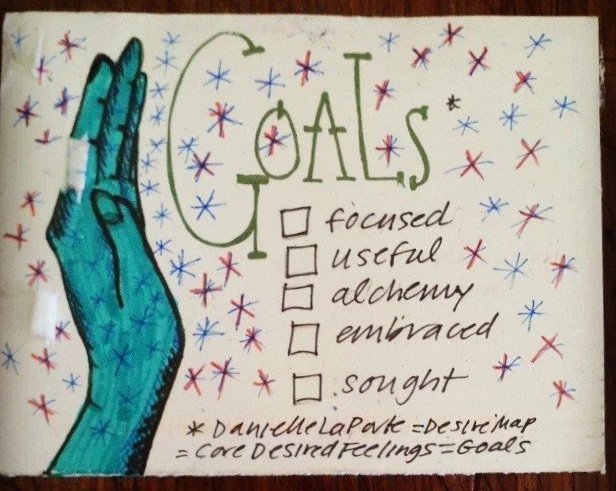 GOALS*
focused
useful
alchemy
embraced
sought
* DanielleLaPorte = Desire Map
= Core Desired Feelings = Goals